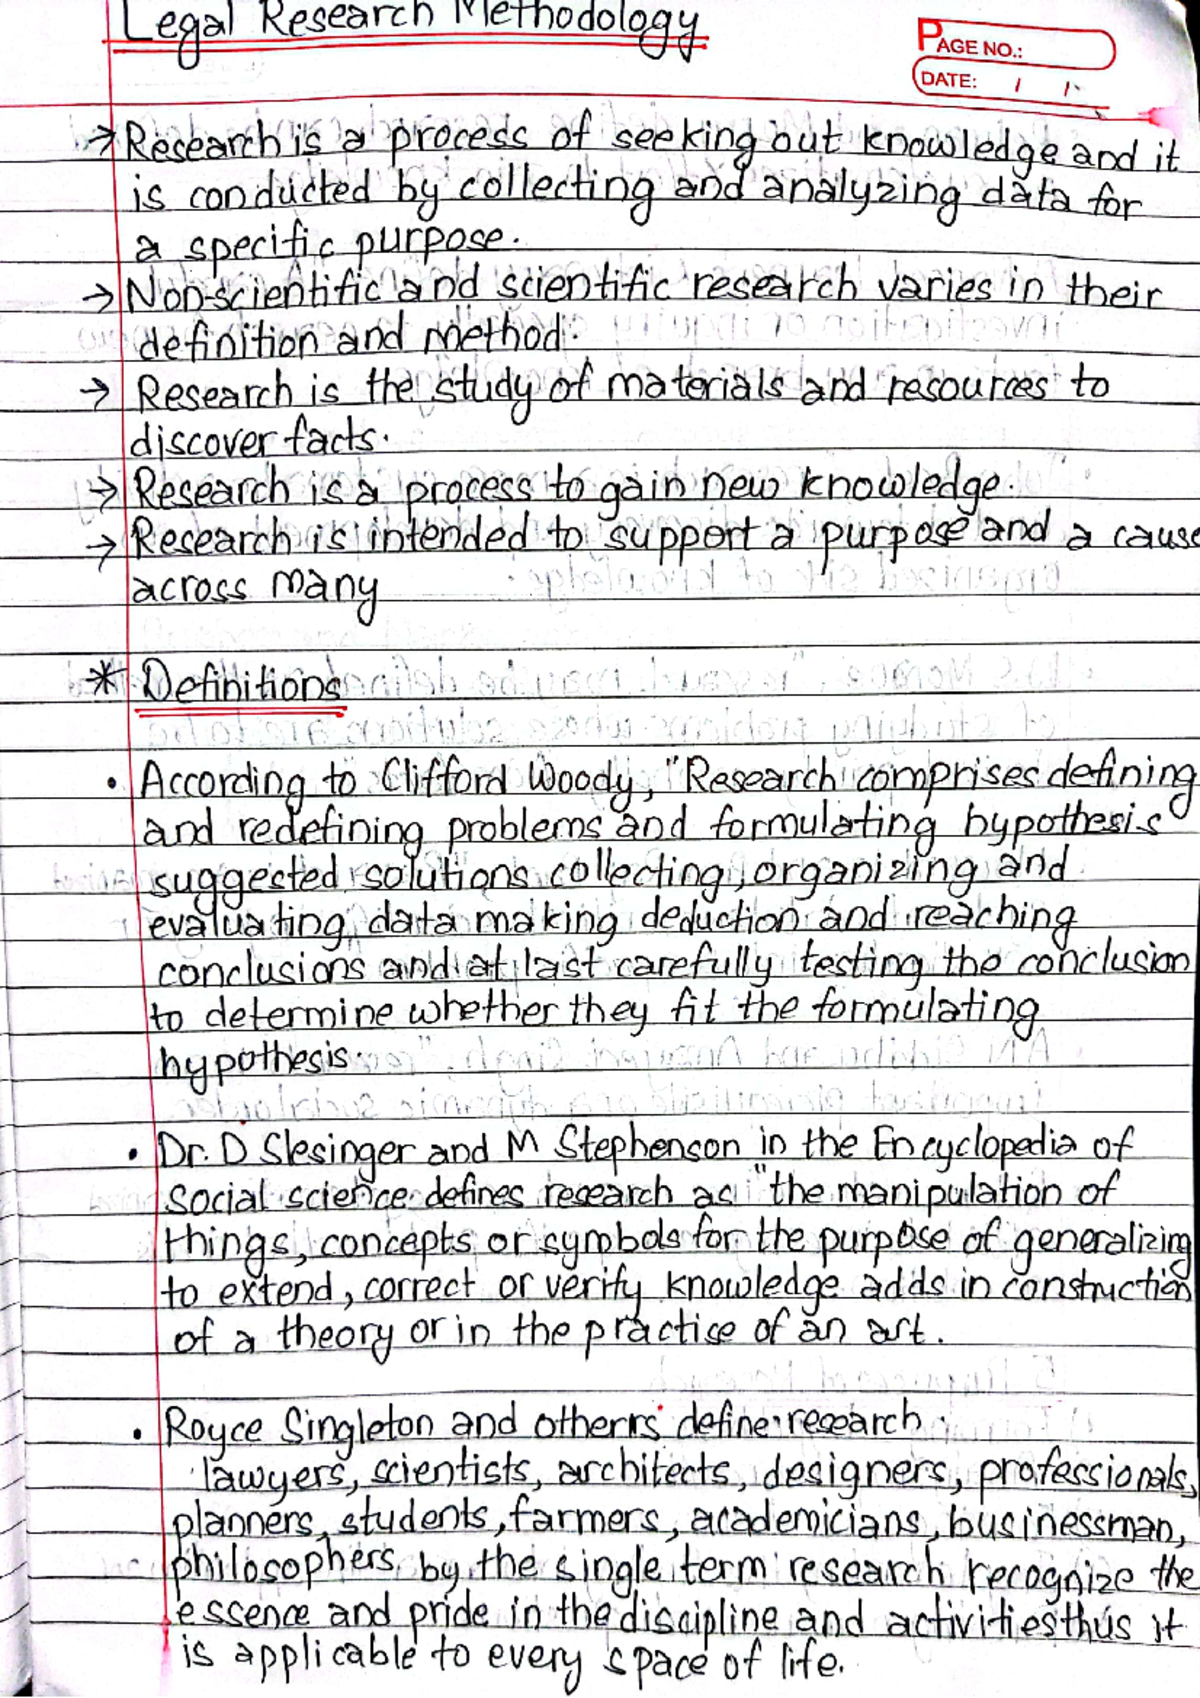 Legal Research Methodology
PAGE NO.:
DATE: / /
→ Research is a process of seeking out knowledge and it
is conducted by collecting and analyzing data for
a specific purpose.
→ Non-scientific and scientific research varies in their
definition and method.
→ Research is the study of materials and resources to
discover facts.
→ Research is a process to gain new knowledge.
→ Research is intended to support a purpose and a cause
across many
* Definitions
• According to Clifford Woody, "Research comprises defining
and redefining problems and formulating hypothesis
suggested solutions collecting, organizing and
evaluating data making deduction and reaching
conclusions and at last carefully testing the conclusion
to determine whether they fit the formulating
hypothesis.
• Dr. D Slesinger and M Stephenson in the Encyclopedia of
Social science defines research as "the manipulation of
things, concepts or symbols for the purpose of generalizing
to extend, correct or verify knowledge adds in construction
of a theory or in the practise of an art.
• Royce Singleton and otherrs define research.
lawyers, scientists, architects, designers, professionals,
planners, students, farmers, academicians, businessman,
philosophers by the single term research recognize the
essence and pride in the discipline and activities thus it
is applicable to every space of life.